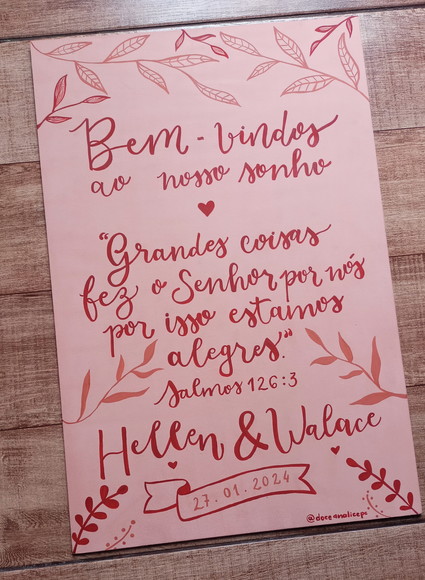 Bem-vindos
ao nosso sonho
"Grandes coisas
fez o Senhor por nós
por isso estamos
alegres."
Salmos 126:3
Hellen & Walace
27.01.2024